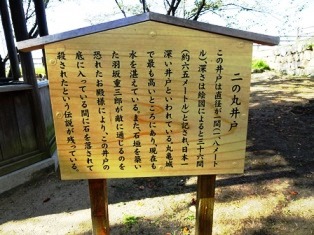 二の丸井戸
この井戸は直径が一間（一八メート
ル）、深さは絵図によると三十六間
（約六五メートル）と記され、日本一
深い井戸といわれている。丸亀城
で最も高いところにあり、現在も
水を湛えている。また、石垣を築い
た羽坂重三郎が敵に通じるのを
恐れたお殿様により、この井戸の
底に入っている間に石を落されて
殺されたという伝説が残っている。